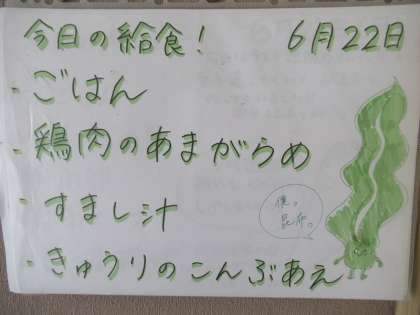 今日の給食! 6月22日
・ごはん
・鶏肉のあまがらめ
・すまし汁
僕。
昆布。
・きゅうりのこんぶあえ